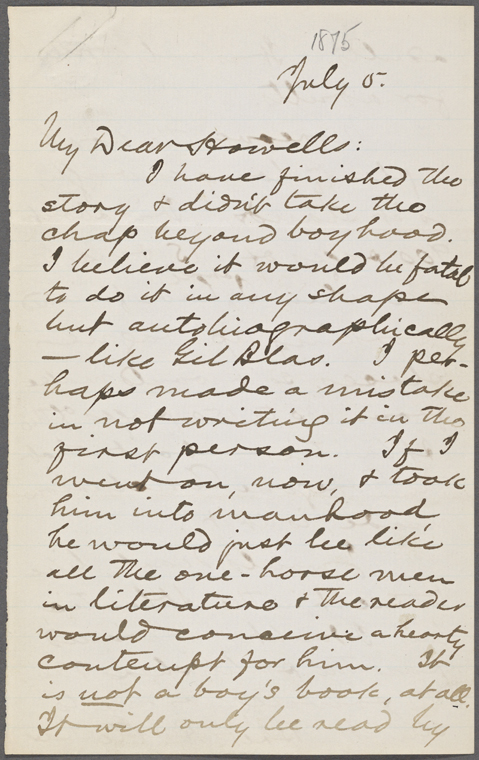 1875
July 5.
My Dear Howells:
I have finished the
story & didn't take the
chap beyond boyhood.
I believe it would be fatal
to do it in any shape
but autobiographically
— like Gil Blas. I per-
haps made a mistake
in not writing it in the
first person. If I
went on, now, & took
him into manhood,
he would just be like
all the one-horse men
in literature & the reader
would conceive a hearty
contempt for him. It
is not a boy's book, at all.
It will only be read by